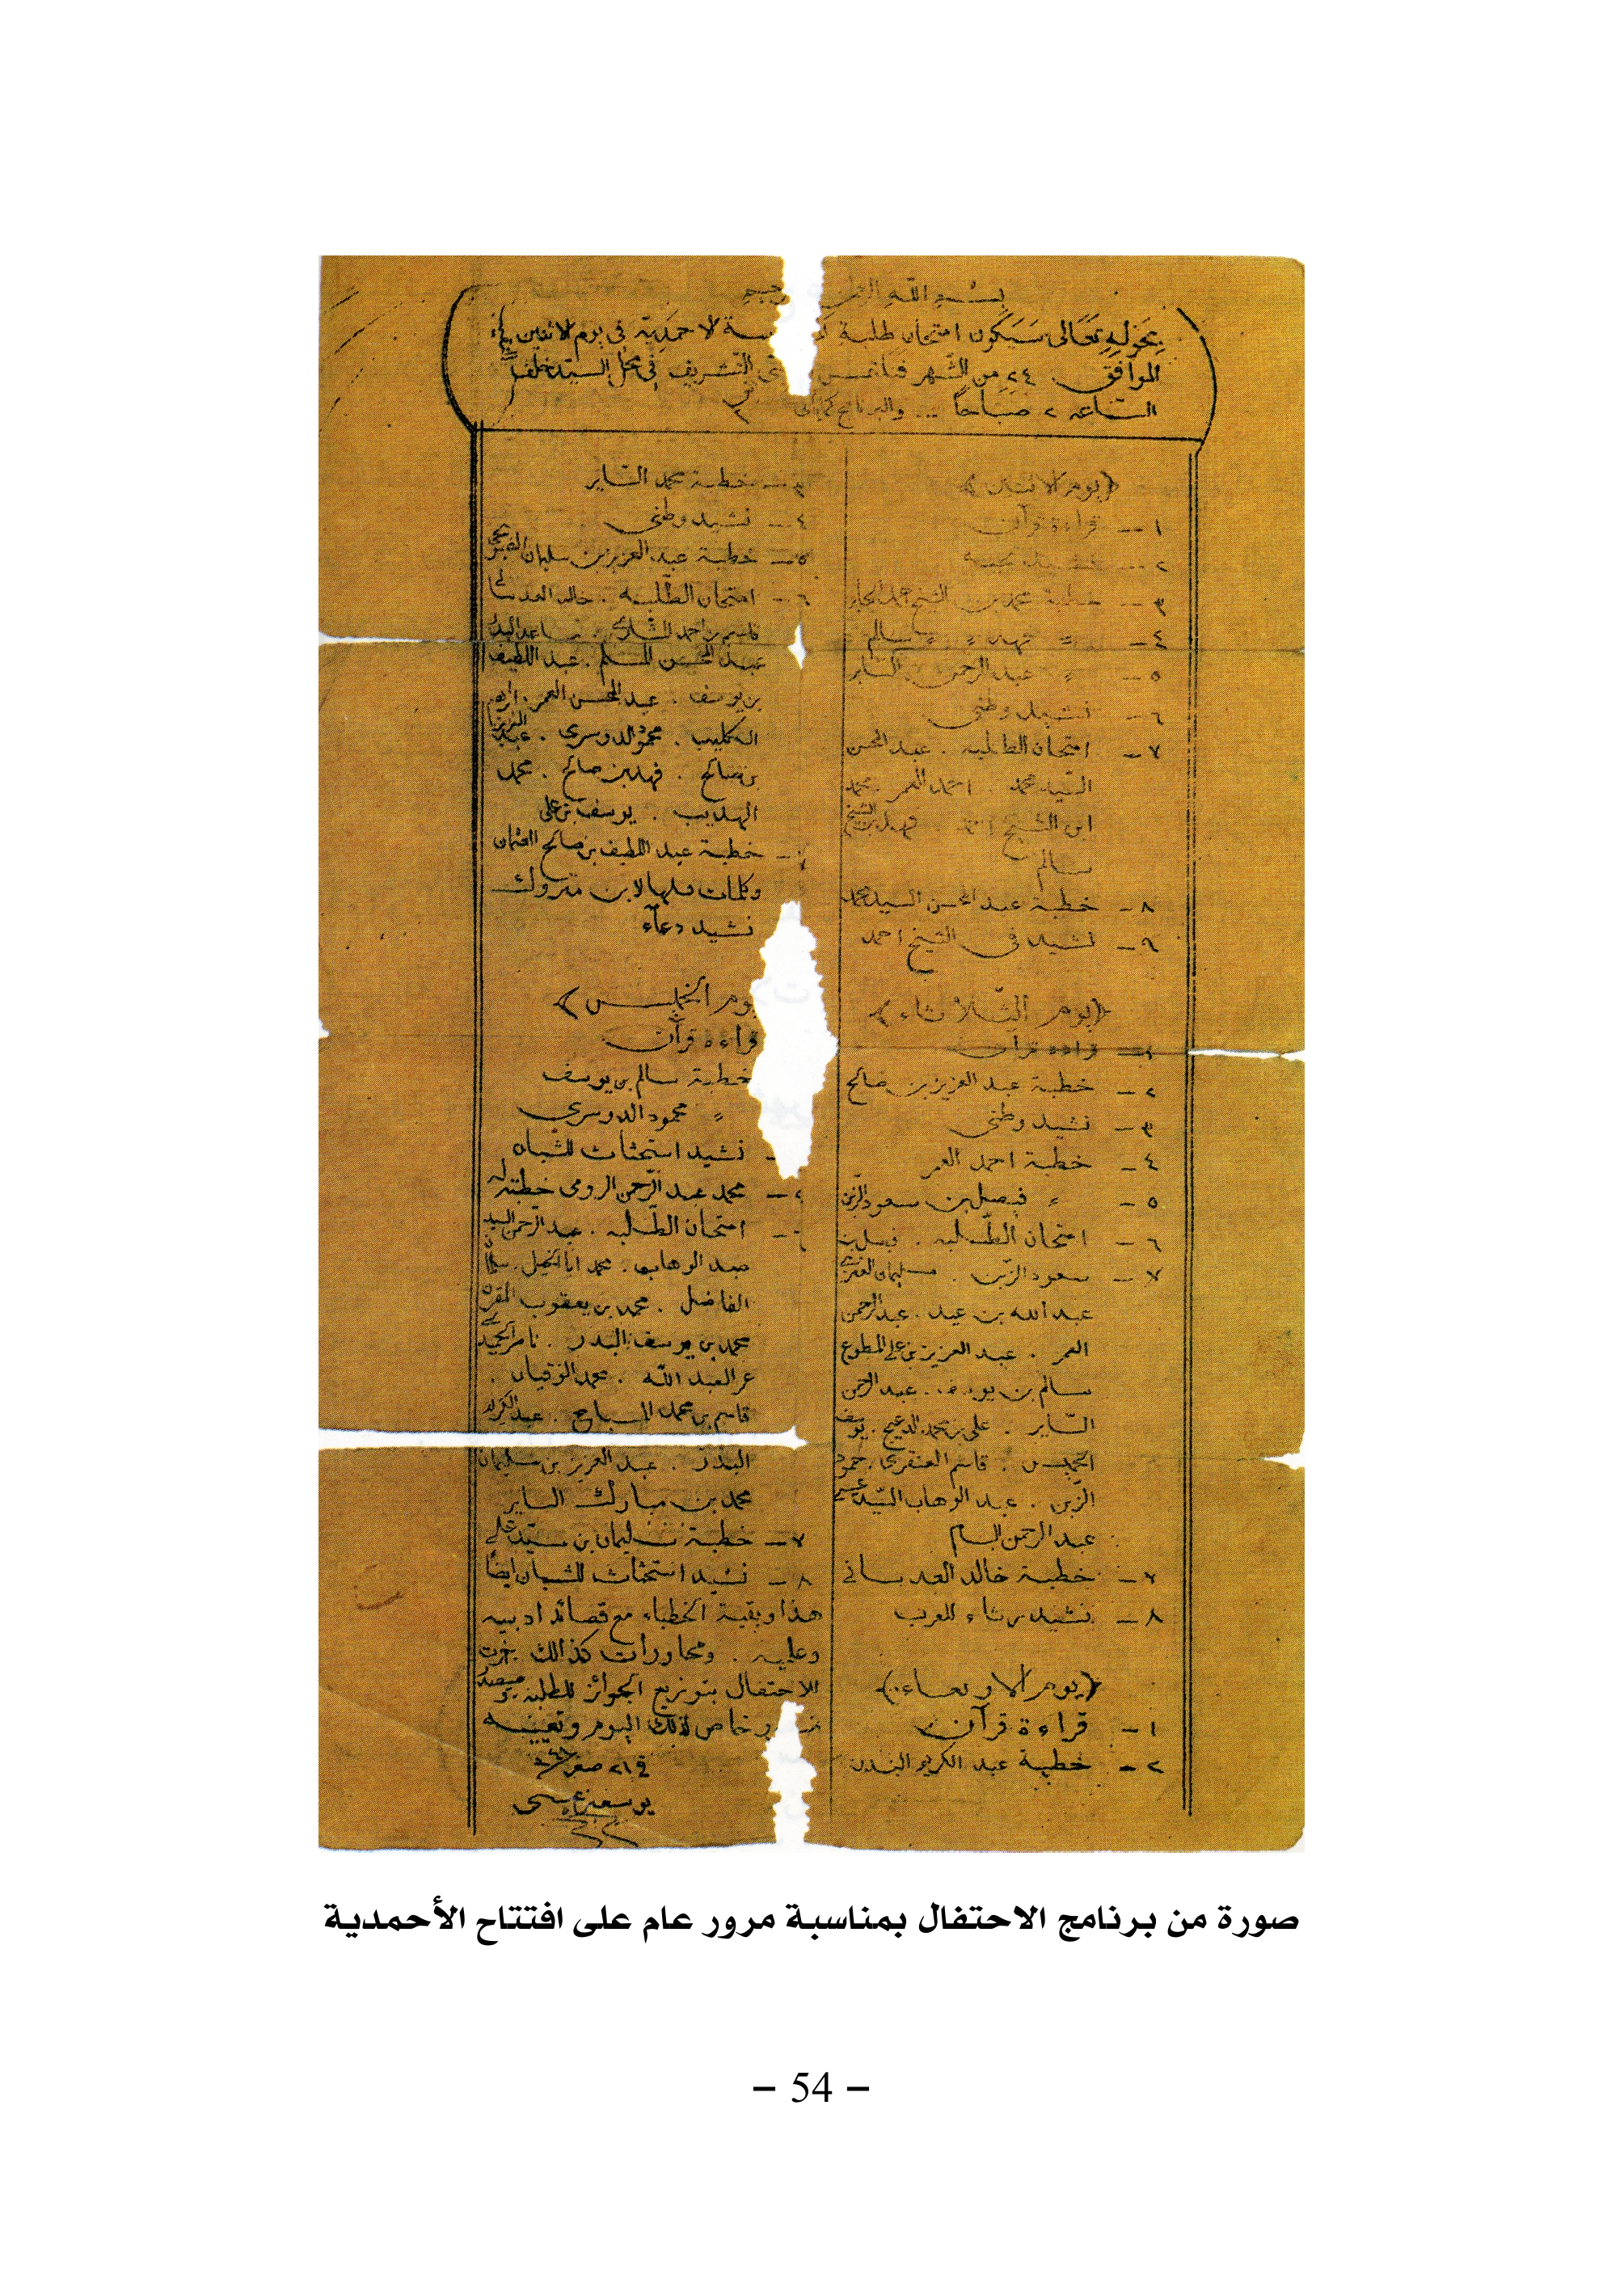 بسم الله الرحيم
بحوله تعالى سيكون امتحان طلبة الاحمدية في يوم الاثنين
الموافق ٢٤ من الشهر فنلتمس التشريف في محل السيد خلف
الساعه ٢ صباحاً ... والبرنامج كما يأتي
﴿يوم الاثنين﴾
١ — قراءة قرآن
٢ — نشيد تحيه
٣ — خطبة محمد بن الشيخ احمد الجابر
٤ — " فهد " " سالم
٥ — " عبد الرحمن الساير
٦ — نشيد وطني
٧ — امتحان الطلبه . عبد المحسن
السيد محمد . احمد العمر . محمد
ابن الشيخ احمد . فهد بن الشيخ
سالم
٨ — خطبة عبد المحسن السيد محمد
٩ — نشيد في الشيخ احمد
﴿يوم الثلاثاء﴾
١ — قراءة قرآن
٢ — خطبة عبد العزيز بن صالح
٣ — نشيد وطني
٤ — خطبة احمد العمر
٥ — " فيصل بن سعود الزبن
٦ — امتحان الطلبه . فيصل بن
٧ — سعود الزبن . سليمان
عبد الله بن عيد . عبد الرحمن
العمر . عبد العزيز بن علي المطوع
سالم بن يوسف . عبد الرحمن
الساير . علي بن محمد الدعيج . يوسف
الخميس . قاسم العنقري . حمود
الزبن . عبد الوهاب السيد عيسى
عبد الرحمن البسام
٧ — خطبة خالد العدساني
٨ — نشيد رثاء للعرب
﴿يوم الاربعاء﴾
١ — قراءة قرآن
٢ — خطبة عبد الكريم البدر
٣ — خطبة محمد الساير
٤ — نشيد وطني
٥ — خطبة عبد العزيز بن سليمان
٦ — امتحان الطلبه . خالد العدساني
قاسم بن احمد . ساعد البدر
عبد المحسن المسلم . عبد اللطيف
بن يوسف . عبد المحسن العمر . ابراهيم
المكليب . محمود الدوسري . عبد العزيز
بن صالح . فهد بن صالح . محمد
الهديب . يوسف بن علي
— خطبة عبد اللطيف بن صالح العثمان
وكلمات قلها لابن متروك
نشيد دعاء
يوم الخميس﴾
قراءة قرآن
خطبة سالم بن يوسف
" محمود الدوسري
— نشيد استحثاث للشباه
— محمد عبد الرحمن الرومي خطبته
٦ — امتحان الطلبه . عبد الرحمن السيد
عبد الوهاب . محمد ابا الخيل .
الفاضل . محمد بن يعقوب
محمد بن يوسف البدر .
عمر العبد الله . محمد .
قاسم بن محمد السباع . عبد الكريم
البدر . عبد العزيز بن سليمان
محمد بن مبارك الساير
٧ — خطبة سليمان بن سيد علي
٨ — نشيد استحثاث للشبان ايضاً
هذا وبقية الخطباء مع قصائد ادبيه
وعلميه . ومحاورات كذالك
الاحتفال بتوزيع الجوائز للطلبه
خاص لذلك اليوم وتعيينه
في ٢١ صفر
يوسف بن عيسى
صورة من برنامج الاحتفال بمناسبة مرور عام على افتتاح الأحمدية
– 54 –